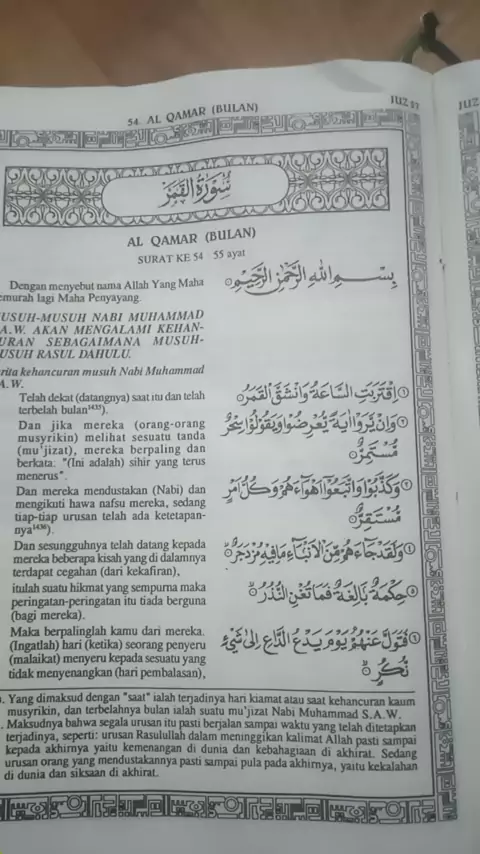 54 AL QAMAR (BULAN)
JUZ 27
JUZ
سُورَةُ القَمَرِ
AL QAMAR (BULAN)
SURAT KE 54 55 ayat
Dengan menyebut nama Allah Yang Maha
emurah lagi Maha Penyayang.
بِسْمِ اللهِ الرَّحْمٰنِ الرَّحِيْمِ
USUH-MUSUH NABI MUHAMMAD
.A.W. AKAN MENGALAMI KEHAN-
URAN SEBAGAIMANA MUSUH-
USUH RASUL DAHULU.
rita kehancuran musuh Nabi Muhammad
A.W.
Telah dekat (datangnya) saat itu dan telah
terbelah bulan¹⁴³⁵).
Dan jika mereka (orang-orang
musyrikin) melihat sesuatu tanda
(mu'jizat), mereka berpaling dan
berkata. "(Ini adalah) sihir yang terus
menerus".
Dan mereka mendustakan (Nabi) dan
mengikuti hawa nafsu mereka, sedang
tiap-tiap urusan telah ada ketetapan-
nya¹⁴³⁶).
Dan sesungguhnya telah datang kepada
mereka beberapa kisah yang di dalamnya
terdapat cegahan (dari kekafiran),
itulah suatu hikmat yang sempurna maka
peringatan-peringatan itu tiada berguna
(bagi mereka).
Maka berpalinglah kamu dari mereka.
(Ingatlah) hari (ketika) seorang penyeru
(malaikat) menyeru kepada sesuatu yang
tidak menyenangkan (hari pembalasan),
١ اِقْتَرَبَتِ السَّاعَةُ وَانْشَقَّ الْقَمَرُ
٢ وَاِنْ يَّرَوْا اٰيَةً يُّعْرِضُوْا وَيَقُوْلُوْا سِحْرٌ
مُّسْتَمِرٌّ
٣ وَكَذَّبُوْا وَاتَّبَعُوْٓا اَهْوَآءَهُمْ وَكُلُّ اَمْرٍ
مُّسْتَقِرٌّ
٤ وَلَقَدْ جَآءَهُمْ مِّنَ الْاَنْۢبَآءِ مَا فِيْهِ مُزْدَجَرٌ
٥ حِكْمَةٌۢ بَالِغَةٌ فَمَا تُغْنِ النُّذُرُ
٦ فَتَوَلَّ عَنْهُمْ يَوْمَ يَدْعُ الدَّاعِ اِلٰى شَيْءٍ
نُّكُرٍ
. Yang dimaksud dengan "saat" ialah terjadinya hari kiamat atau saat kehancuran kaum
musyrikin, dan terbelahnya bulan ialah suatu mu'jizat Nabi Muhammad S.A.W.
. Maksudnya bahwa segala urusan itu pasti berjalan sampai waktu yang telah ditetapkan
terjadinya, seperti: urusan Rasulullah dalam meninggikan kalimat Allah pasti sampai
kepada akhirnya yaitu kemenangan di dunia dan kebahagiaan di akhirat. Sedang
urusan orang yang mendustakannya pasti sampai pula pada akhirnya, yaitu kekalahan
di dunia dan siksaan di akhirat.